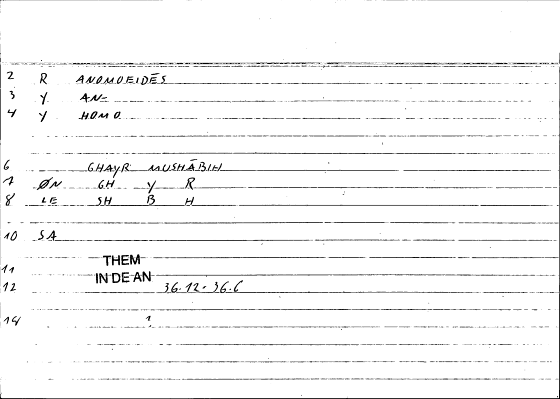 2 R ANOMOEIDĒS
3 Y AN-
4 Y HOMO
6 GHAYR MUSHĀBIH
7 ØN GH Y R
8 LE SH B H
10 SA
THEM
11 IN DE AN
12 36.12 - 36.6
14 1